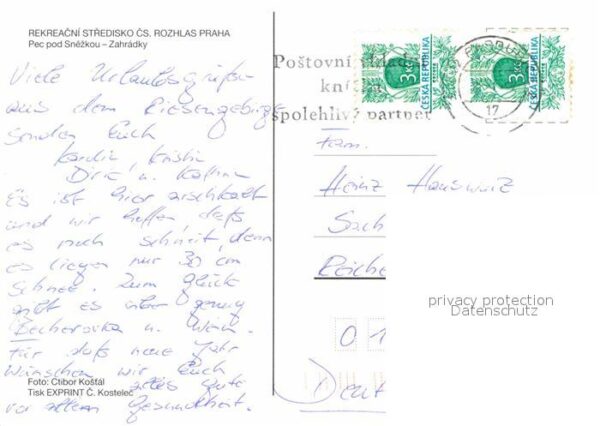 REKREAČNÍ STŘEDISKO ČS. ROZHLAS PRAHA
Pec pod Sněžkou – Zahrádky
Viele Urlaubsgrüße
aus dem Riesengebirge
senden Euch
Kristin
u.
Es ist hier arschkalt
und wir hoffen, daß
es noch schneit, denn
es liegen nur 30 cm
Schnee. Zum Glück
gibt es aber genug
Becherovka u. Wein.
Für das neue Jahr
wünschen wir Euch
alles Gute
vor allem Gesundheit.
Foto: Ctibor Košťál
Tisk EXPRINT Č. Kostelec
Poštovní
spolehlivý partner
ČESKÁ REPUBLIKA
3
ČESKÁ REPUBLIKA
3
17
Fam.
Heinz
Sach
Reiche
0 1
Deut
privacy protection
Datenschutz